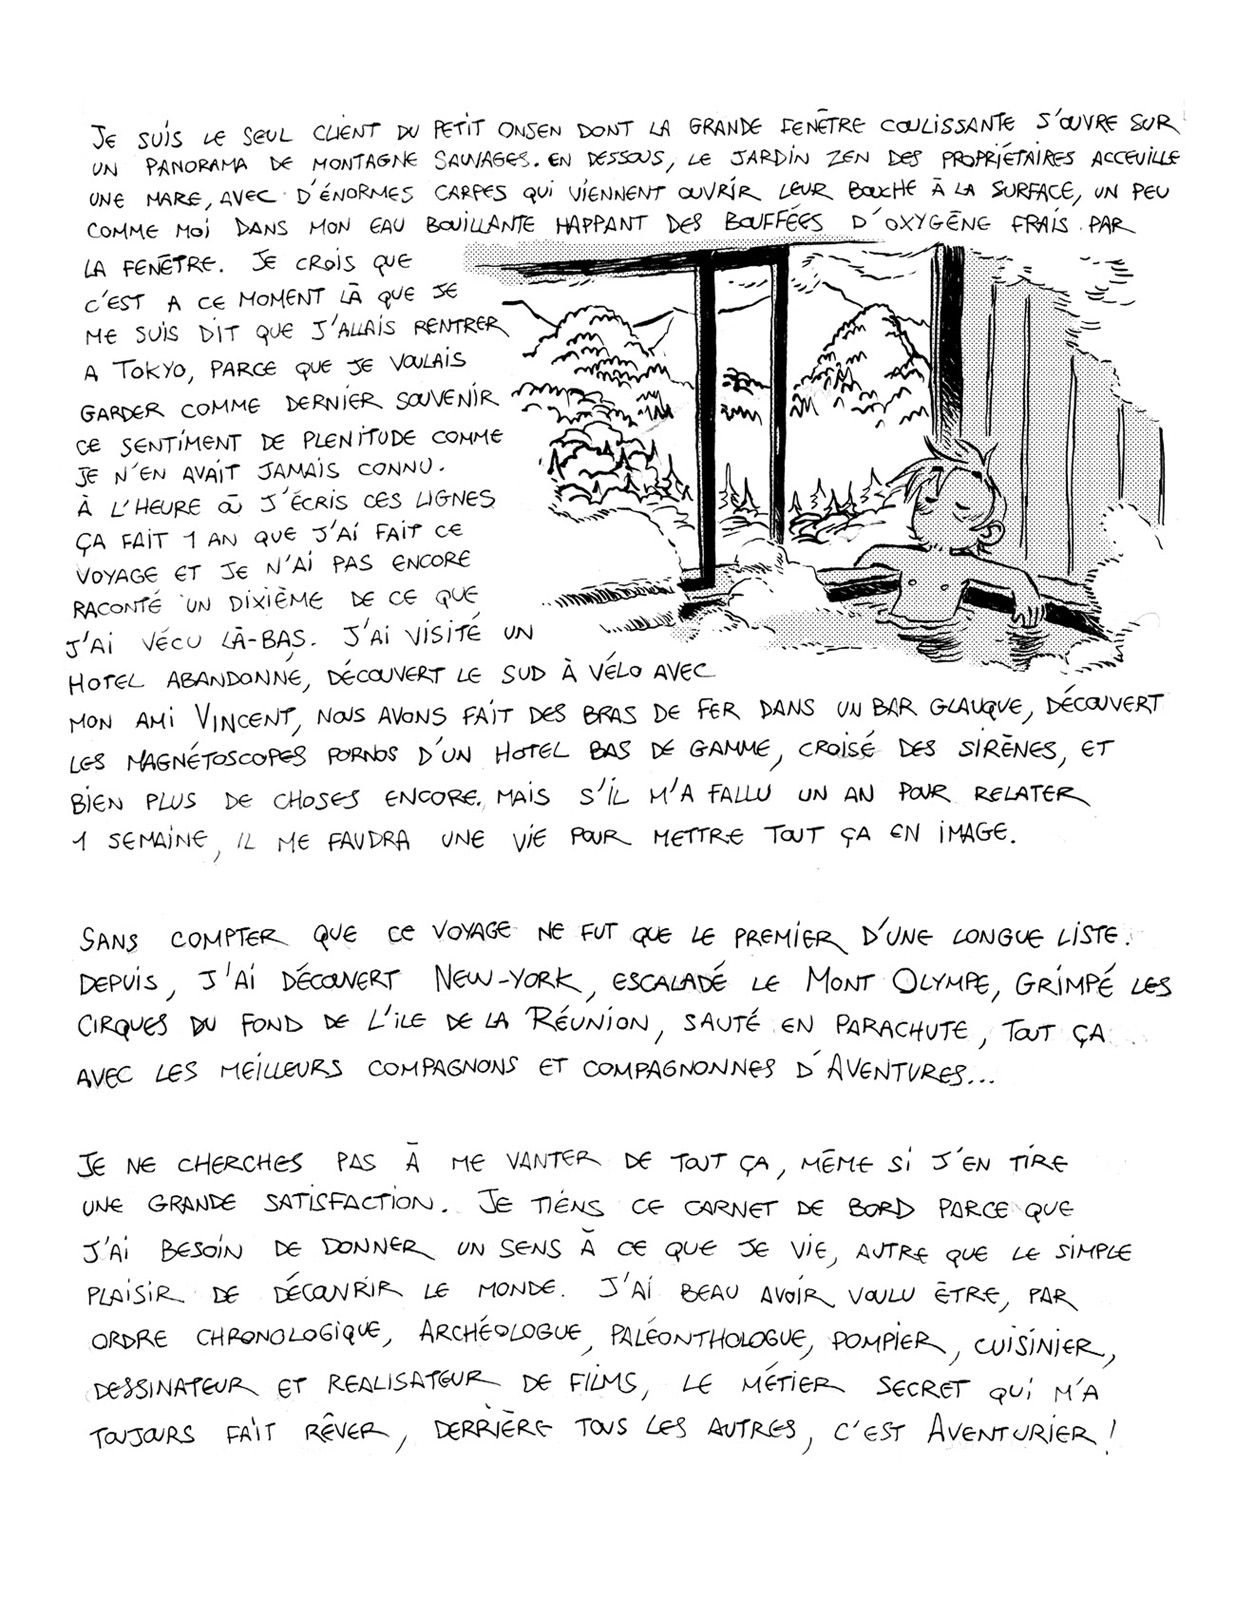 JE SUIS LE SEUL CLIENT DU PETIT ONSEN DONT LA GRANDE FENÊTRE COULISSANTE S'OUVRE SUR
UN PANORAMA DE MONTAGNE SAUVAGES. EN DESSOUS, LE JARDIN ZEN DES PROPRIÉTAIRES ACCEUILLE
UNE MARE, AVEC D'ÉNORMES CARPES QUI VIENNENT OUVRIR LEUR BOUCHE À LA SURFACE, UN PEU
COMME MOI DANS MON EAU BOUILLANTE HAPPANT DES BOUFFÉES D'OXYGÈNE FRAIS PAR
LA FENÊTRE. JE CROIS QUE
C'EST A CE MOMENT LÀ QUE JE
ME SUIS DIT QUE J'ALLAIS RENTRER
A TOKYO, PARCE QUE JE VOULAIS
GARDER COMME DERNIER SOUVENIR
CE SENTIMENT DE PLENITUDE COMME
JE N'EN AVAIT JAMAIS CONNU.
À L'HEURE OÙ J'ÉCRIS CES LIGNES
ÇA FAIT 1 AN QUE J'AI FAIT CE
VOYAGE ET JE N'AI PAS ENCORE
RACONTÉ UN DIXIÈME DE CE QUE
J'AI VÉCU LÀ-BAS. J'AI VISITÉ UN
HOTEL ABANDONNÉ, DÉCOUVERT LE SUD À VÉLO AVEC
MON AMI VINCENT, NOUS AVONS FAIT DES BRAS DE FER DANS UN BAR GLAUQUE, DÉCOUVERT
LES MAGNÉTOSCOPES PORNOS D'UN HOTEL BAS DE GAMME, CROISÉ DES SIRÈNES, ET
BIEN PLUS DE CHOSES ENCORE. MAIS S'IL M'A FALLU UN AN POUR RELATER
1 SEMAINE, IL ME FAUDRA UNE VIE POUR METTRE TOUT ÇA EN IMAGE.
SANS COMPTER QUE CE VOYAGE NE FUT QUE LE PREMIER D'UNE LONGUE LISTE.
DEPUIS, J'AI DÉCOUVERT NEW-YORK, ESCALADÉ LE MONT OLYMPE, GRIMPÉ LES
CIRQUES DU FOND DE L'ILE DE LA RÉUNION, SAUTÉ EN PARACHUTE, TOUT ÇA
AVEC LES MEILLEURS COMPAGNONS ET COMPAGNONNES D'AVENTURES...
JE NE CHERCHES PAS À ME VANTER DE TOUT ÇA, MÊME SI J'EN TIRE
UNE GRANDE SATISFACTION. JE TIENS CE CARNET DE BORD PARCE QUE
J'AI BESOIN DE DONNER UN SENS À CE QUE JE VIE, AUTRE QUE LE SIMPLE
PLAISIR DE DÉCOUVRIR LE MONDE. J'AI BEAU AVOIR VOULU ÊTRE, PAR
ORDRE CHRONOLOGIQUE, ARCHÉOLOGUE, PALÉONTHOLOGUE, POMPIER, CUISINIER,
DESSINATEUR ET REALISATEUR DE FILMS, LE MÉTIER SECRET QUI M'A
TOUJOURS FAIT RÊVER, DERRIÈRE TOUS LES AUTRES, C'EST AVENTURIER !